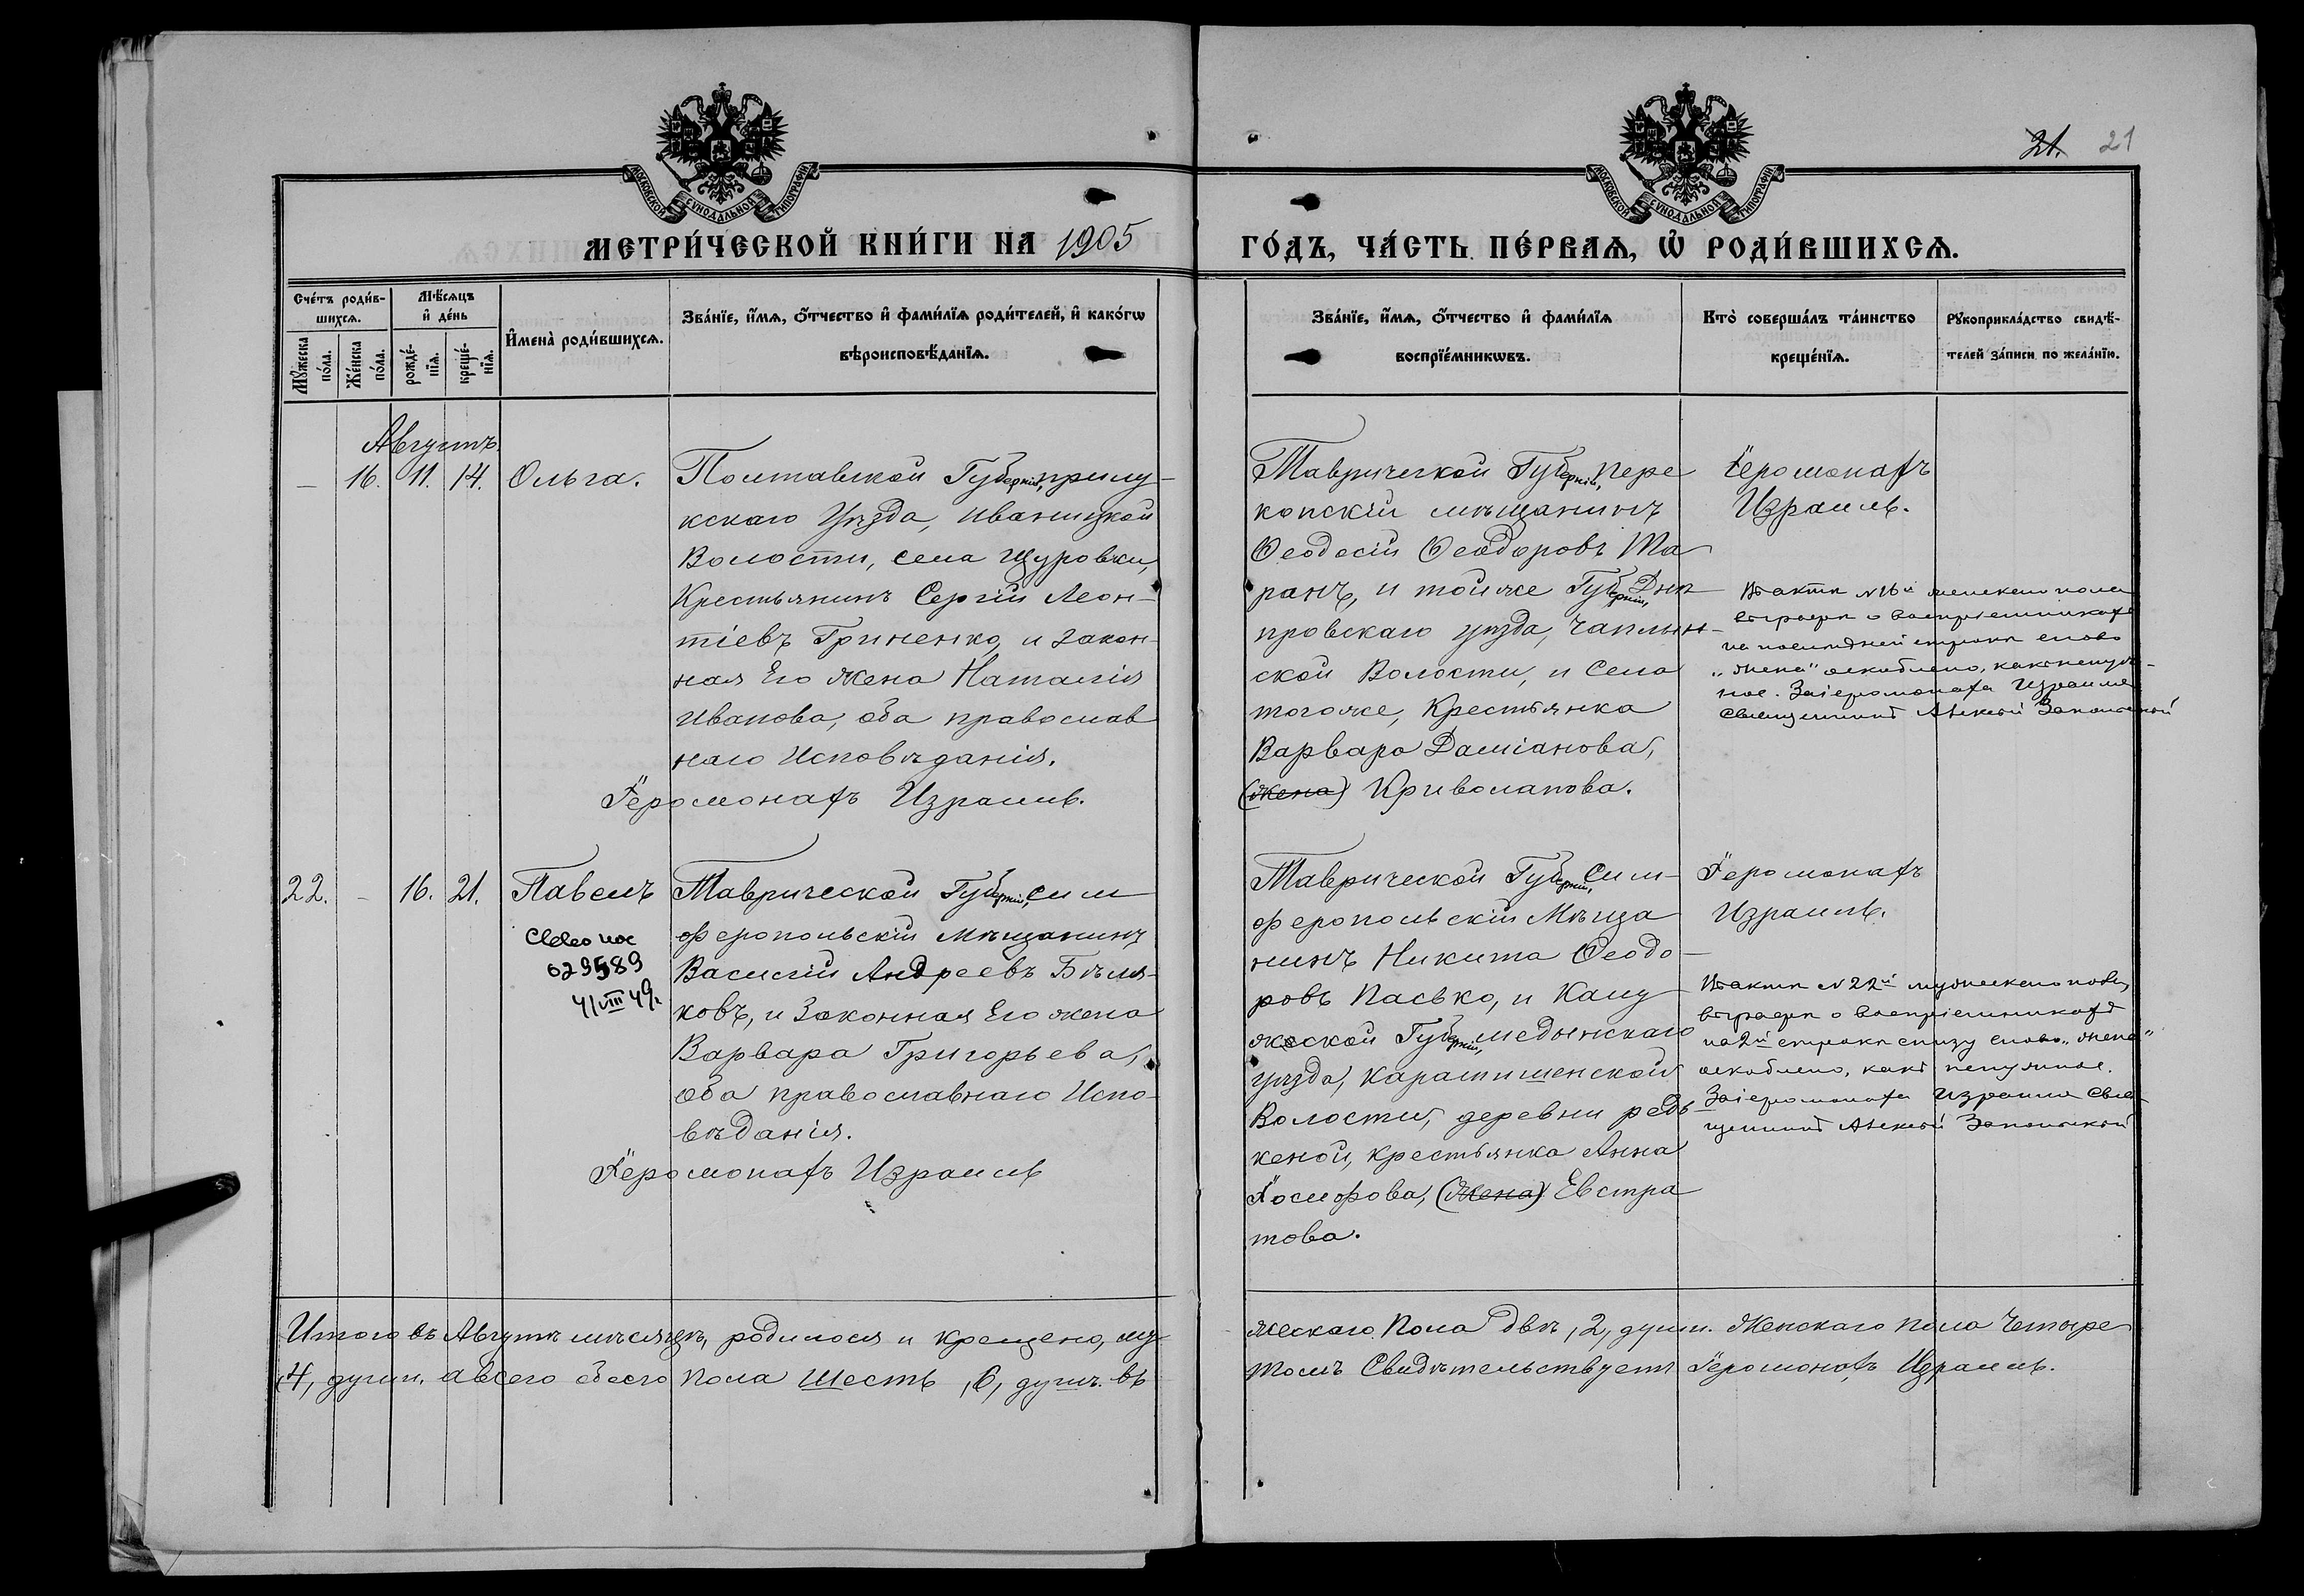 21. 21
МОСКОВСКОЙ СѴНОДАЛЬНОЙ ТИПОГРАФІИ
МОСКОВСКОЙ СѴНОДАЛЬНОЙ ТИПОГРАФІИ
МЕТРИ́ЧЕСКОЙ КНИ́ГИ НА 1905
ГО́ДЪ, ЧА́СТЬ ПЕ́РВАѦ, Ѡ҆ РОДИ́ВШИХСѦ.
Сче́тъ роди́в-
шихсѧ.
Мꙋ́жеска
по́ла.
Же́нска
по́ла.
Мѣ́сѧцъ
и҆ де́нь
рожде́-
нїѧ.
креще́-
нїѧ.
И҆мена̀ роди́вшихсѧ.
Зва́нїе, и҆́мѧ, ѻ҆́тчество и҆ фами́лїѧ роди́телей, и҆ како́гѡ
вѣроисповѣ́данїѧ.
Зва́нїе, и҆́мѧ, ѻ҆́тчество и҆ фами́лїѧ
воспрїе́мникѡвъ.
Кто̀ соверша́лъ та́инство
креще́нїѧ.
Рꙋкоприкла́дство свидѣ́-
телей за́писи по жела́нїю.
Августъ.
— 16. 11. 14. Ольга.
Полтавской Губерніи, прилу-
кскаго Уѣзда, Иваницкой
Волости, села Щуровки,
Крестьянинъ Сергій Леон-
тіевъ Гриненко, и закон-
ная Его Жена Наталія
Иванова, оба православ
наго Исповѣданія.
Іеромонахъ Израиль.
Таврической Губерніи, пере
копскій мѣщанинъ
Ѳеодосій Ѳеодоровъ Та
ранъ, и тойже Губерніи, Днѣ
провскаго уѣзда, Чаплин-
ской Волости, и Села
тогоже, Крестьянка
Варвара Даміанова,
(Жена) Кривошапова.
Іеромонахъ
Израиль.
Въ актѣ № 16й женскаго пола
въ графѣ о воспріемникахъ
на послѣдней строкѣ слово
„жена" оскоблено, какъ ненуж-
ное. За іеромонаха Израиля
Священникъ Алексій
22. — 16. 21. Павелъ
629589
4/VIII 49г.
Таврической Губерніи, сим
феропольскій Мѣщанинъ
Василій Андреевъ Бѣля-
ковъ, и Законная Его жена
Варвара Григорьева,
оба православнаго Испо-
вѣданія.
Іеромонахъ Израиль
Таврической Губерніи, Сим-
феропольскій Мѣща
нинъ Никита Ѳеодо-
ровъ Пасько, и Калу
жской Губерніи, медынскаго
уѣзда, Карамышенской
Волости, деревни редь
кеной, крестьянка Анна
Іосифова, (Жена) Евстра
това.
Іеромонахъ
Израиль.
Въ актѣ № 22й мужескаго пола,
въ графѣ о воспріемникахъ
на 2й строкѣ снизу слово „жена"
оскоблено, какъ ненужное.
За іеромонаха Израиля Свя-
щенникъ Алексій
Итого въ Августѣ мѣсяцѣ, родилося и крещено, му-
жескаго Пола двѣ, 2, души. Женскаго пола Четыре
4, души. А всего обоего Пола Шесть, 6, душъ. въ
томъ Свидѣтельствуетъ Іеромонахъ Израиль.